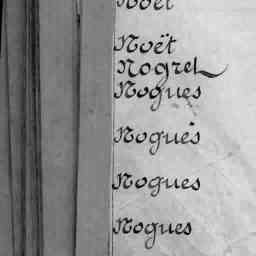 Noët
Noët
Nogret
Nogues
Noguès
Nogues
Nogues